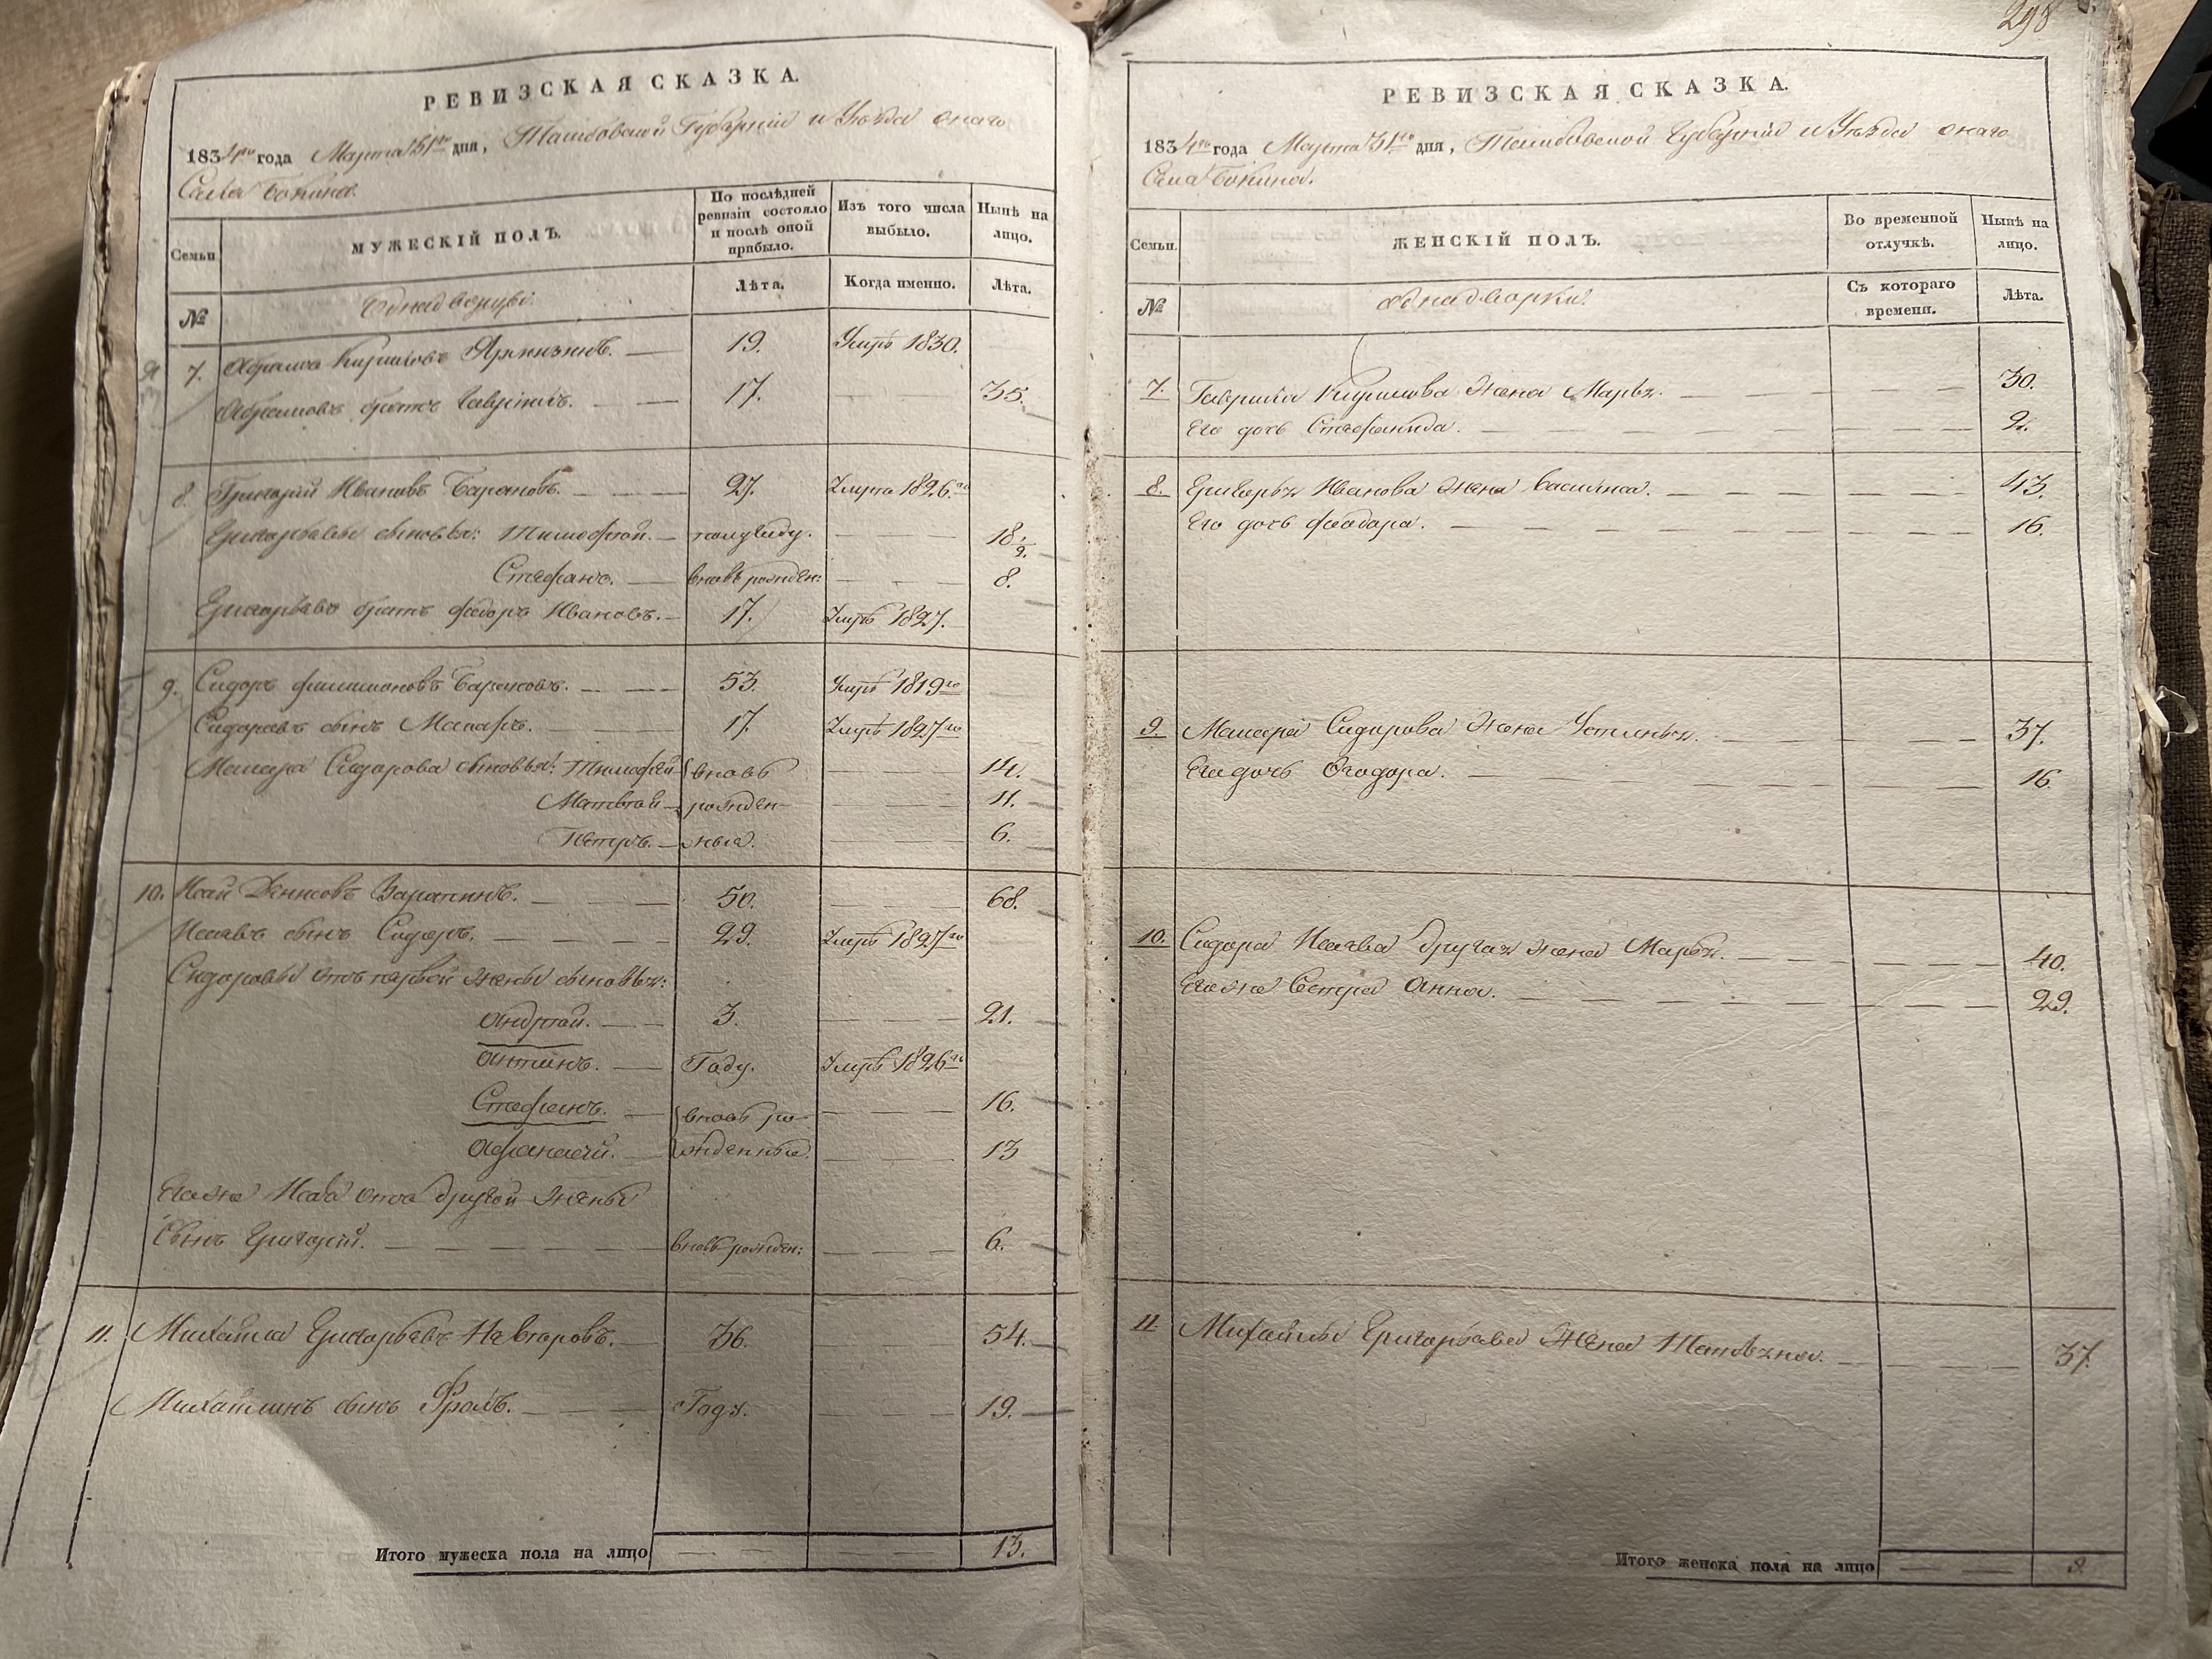 298
РЕВИЗСКАЯ СКАЗКА.
1834го года Марта 31го дня, Тамбовской Губернии и Уезда онаго
Села Бокина.
Семьи.
МУЖЕСКІЙ ПОЛЪ.
По послѣдней ревизіи состояло и послѣ оной прибыло.
Изъ того числа выбыло.
Нынѣ на лицо.
№
Однодворцы.
Лѣта.
Когда именно.
Лѣта.
7. Абрамъ Кириловъ — 19. Умръ 1830.
Абрамовъ братъ Гаврила. — 17. 35.
8. Григорій Ивановъ Барановъ. — 27. Умре 1826го
Григорьевы сыновья: Тимофей. — полугоду. 18 1/2.
Стефанъ. — вновь рожден: 8.
Григорьевъ братъ Федоръ Ивановъ. — 17. Умръ 1827.
9. Сидоръ Филимоновъ Барановъ. — 53. Умръ 1819го
Сидоровъ сынъ Макаръ. — 17. Умръ 1827го
Макара Сидорова сыновья: Тимофей вновь 14.
Матвей — рожден- 11.
Петръ. — ные. 6.
10. Исай Денисовъ — 50. 68.
Исаевъ сынъ Сидоръ. — 29. Умръ 1827го
Сидоровы отъ первой жены сыновья:
Андрей. — 3. 21.
Антипъ. — Году. Умръ 1826го
Стефанъ. — вновь ро- 16.
Афанасей. — жденные. 13
Его же Исая отъ другой жены
Сынъ Григорій. — вновь рожден: 6.
11. Михайла Григорьевъ — 36. 54.
Михайлинъ сынъ Фролъ. — Году. 19.
Итого мужеска пола на лицо — — 13.
РЕВИЗСКАЯ СКАЗКА.
1834го года Марта 31го дня, Тамбовской Губерніи и Уезда онаго
Села Бокина.
Семьи.
ЖЕНСКІЙ ПОЛЪ.
Во временной отлучкѣ.
Нынѣ на лицо.
№
Однодворки.
Съ котораго времени.
Лѣта.
7. Гаврила Кирилова жена Марья. — 30.
Его дочь Стефанида. — 2.
8. Григорья Иванова жена Василиса. — 43.
Его дочь Феодора. — 16.
9. Макара Сидорова жена Устинья. — 37.
Его дочь Феодора. — 16.
10. Сидора Исаева другая жена Марья. — 40.
Его же Сестра Анна. — 29.
11. Михайлы Григорьева жена — 37.
Итого женска пола на лицо — — 9.